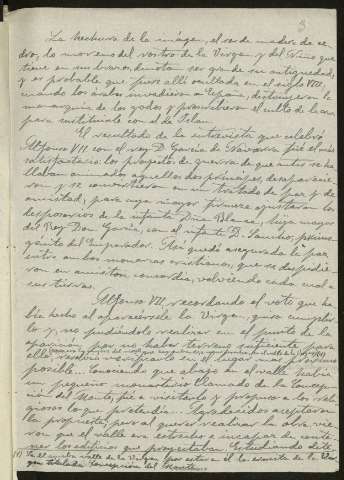 3
La hechura de la imágen, el ser de madera de ce-
dro, lo moreno del rostro de la Virgen y del Niño que
tiene en sus brazos, denotan ser grande su antigüedad,
y es probable que fuese allí ocultada en el siglo VIII,
cuando los árabes invadieron a España, destruyeron la
monarquía de los godos y proscribieron el culto de la cruz
para sustituirle con el de Islam.
El resultado de la entrevista que celebró
Alfonso VII con el rey D. García de Navarra fué el más
satisfactorio: los propósitos de guerra de que antes se ha-
llaban animados aquellos dos príncipes, desaparecie-
ron y se convirtieron en un tratado de paz y de
amistad; para cuya mayor firmeza ajustaron los
desposorios de la infanta Dña Blanca, hija mayor
del Rey Don García, con el infante D. Sancho, primo-
génito del Emperador. Así quedó asegurada la paz
entre ambos monarcas cristianos, que se despidie-
ron en amistosa concordia, volviendo cada cual a
sus tierras.
Alfonso VII, recordando el voto que ha-
bía hecho al aparecérsele la Virgen, quiso cumplir-
lo y, no pudiéndolo realizar en el punto de la
aparición, por no haber terreno suficiente para
ello, resolvió verificarlo en el lugar más próximo
posible. Conociendo que abajo en el valle había
un pequeño monasterio llamado de la Concep-
ción del Monte, fué a visitarlo y propuso a los reli-
giosos lo que pretendía. Agradecidos aceptaron
la propuesta, pero al querer realizar la obra, vie-
ron que el valle era estrecho e incapaz de conte-
ner los edificios que proyectaban. Estudiando dete-
(1) En el mismo valle de la Virgen por estar en él la ermita de la Vir-
gen titulada Concepción del Monte.